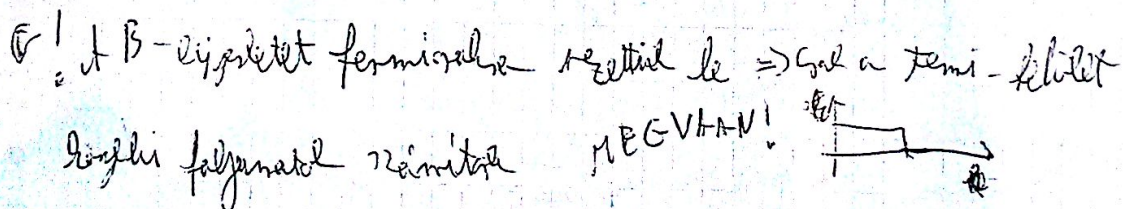 ! A B-egyenletet fermionokra vezettük le => csak a Fermi-felület
környéki folyamatok számítanak MEGVAAN!